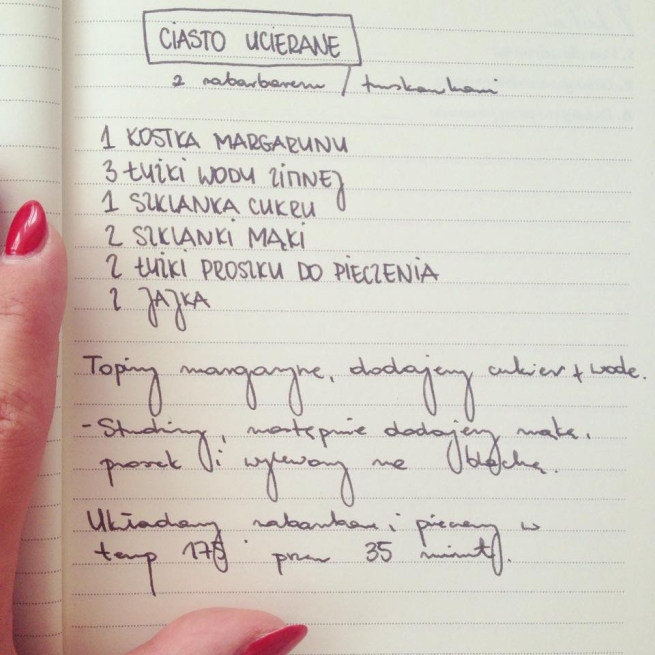 CIASTO UCIERANE
z rabarbarem / truskawkami
1 KOSTKA MARGARYNY
3 ŁYŻKI WODY ZIMNEJ
1 SZKLANKA CUKRU
2 SZKLANKI MĄKI
2 ŁYŻKI PROSZKU DO PIECZENIA
2 JAJKA
Topimy margarynę, dodajemy cukier + wodę.
- Studzimy, następnie dodajemy mąkę,
proszek i wylewamy na blachę.
Układamy rabarbar i pieczemy w
temp 175° przez 35 minut.